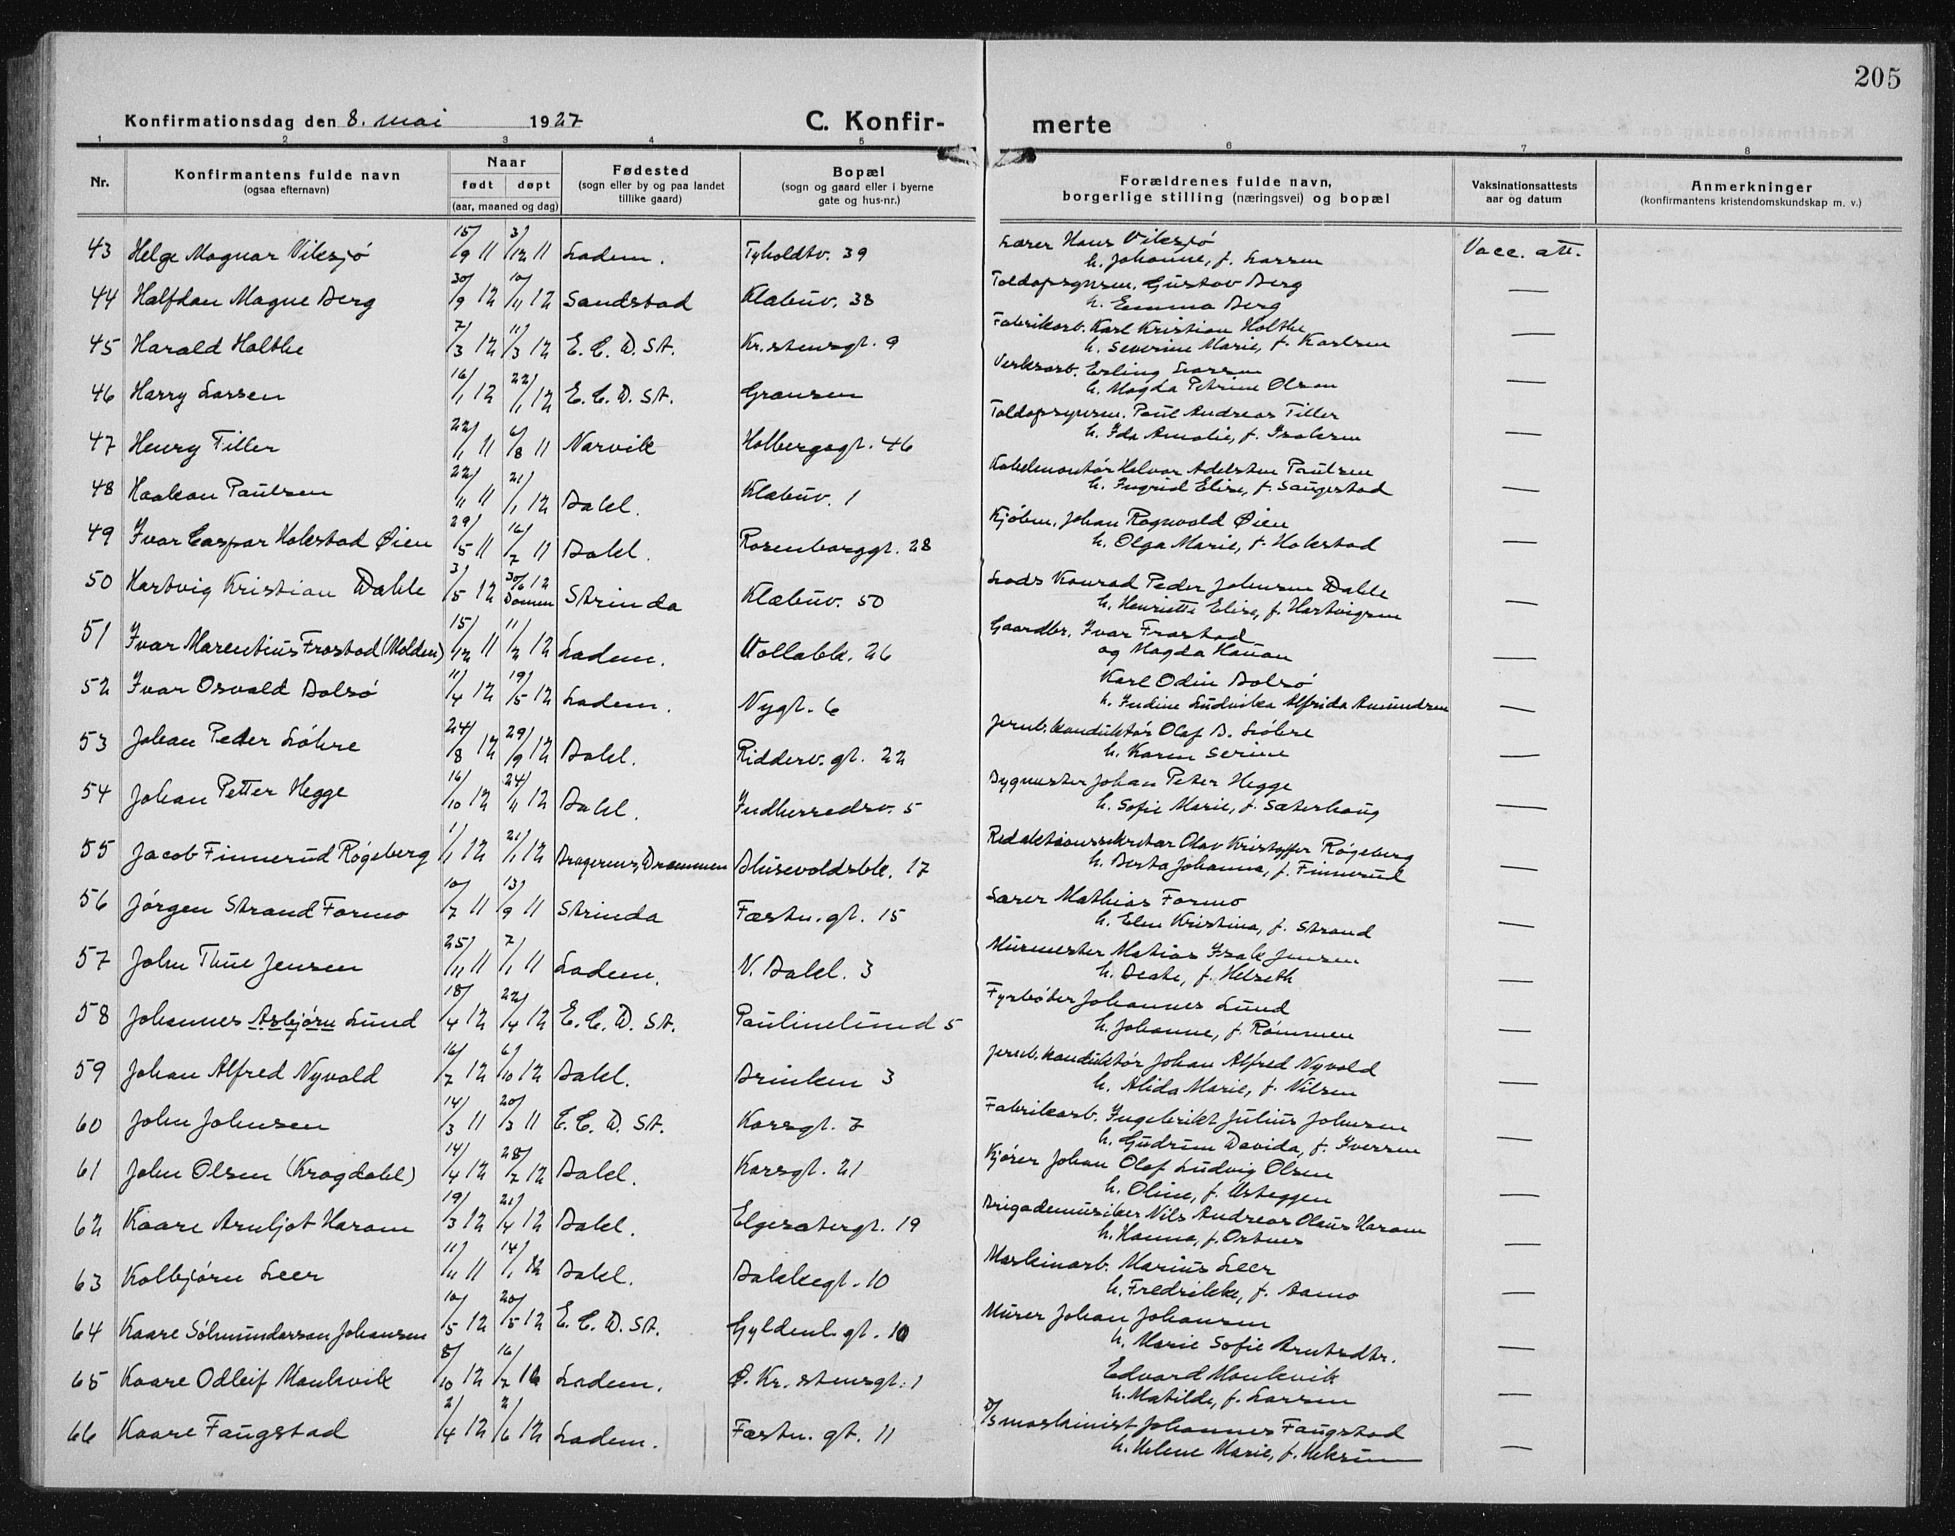 205
Konfirmationsdag den 8. mai 1927 C. Konfir- merte
1 2 3 4 5 6 7 8
Nr. Konfirmantens fulde navn (ogsaa efternavn) Naar født døpt (aar, maaned og dag) Fødested (sogn eller by og paa landet tillike gaard) Bopæl (sogn og gaard eller i byerne gate og hus-nr.) Forældrenes fulde navn, borgerlige stilling (næringsvei) og bopæl Vaksinationsattests aar og datum Anmerkninger (konfirmantens kristendomskundskap m. v.)
43 Helge Magnar Viksjø 15/9 11 3/12 11 Ladem. Tyholdtv. 39 Lærer Hans Viksjø Vacc. att.
h. Johanne, f. Larsen
44 Halfdan Magne Berg 30/9 12 10/11 12 Sandstad Klæbuv. 38 Toldopsynsm. Gustav Berg —
h. Emma Berg
45 Harald Holthe 7/3 12 11/3 12 E. C. D. St. Kr.stensgt. 9 Fabrikarb. Karl Kristian Holthe —
h. Severine Marie, f. Karlsen
46 Harry Larsen 16/1 12 22/1 12 E. C. D. St. Gransen Verksarb. Erling Larsen —
h. Magda Petrine Olsen
47 Henry Tiller 22/1 11 6/8 11 Narvik Holbergsgt. 46 Toldopsynsm. Paul Andreas Tiller —
h. Ida Amalie, f. Isaksen
48 Haakon Paulsen 22/11 11 21/1 12 Bakl. Klæbuv. 1 Kabelmontør Halvor Adelsten Paulsen —
h. Ingrid Elise, f. Saugestad
49 Ivar Caspar Hokstad Øien 29/5 11 16/7 11 Bakl. Rosenborggt. 28 Kjøbm. Johan Ragnvald Øien —
h. Olga Marie, f. Hokstad
50 Hartvig Kristian Dahle 3/5 12 30/6 12 Domen Strinda Klæbuv. 50 Lods Konrad Peder Johnsen Dahle —
h. Henriette Elise, f. Hartvigsen
51 Ivar Marentius Frostad (Molden) 15/12 11 11/2 12 Ladem. Vollabk. 26 Gaardbr. Ivar Frostad —
og Magda Hauan
52 Ivar Osvald Dolsø 11/4 12 19/5 12 Ladem. Nygt. 6 Karl Odin Dolsø
h. Indine Ludvika Alfrida Amundsen —
53 Johan Peder Løhre 24/8 12 29/9 12 Bakl. Ridderv.gt. 22 Jernb.konduktør Olaf B. Løhre —
h. Karen Serine
54 Johan Petter Hegge 16/10 12 24/11 12 Bakl. Indherredsv. 5 Bygmester Johan Peter Hegge —
h. Sofie Marie, f. Sæterhaug
55 Jacob Finnerud Røgeberg 1/1 12 21/1 12 Bragernes, Drammen Blusevoldsbk. 17 Redaktionssekretær Olav Kristoffer Røgeberg —
h. Berta Johanna, f. Finnerud
56 Jørgen Strand Formo 10/7 11 13/9 11 Strinda Fæstn. gt. 15 Lærer Mathias Formo —
h. Elen Kristina, f. Strand
57 John Thue Jensen 25/11 11 7/1 11 Ladem. N. Bakl. 3 Murmester Matias Isak Jensen —
h. Beate, f. Helseth
58 Johannes Asbjørn Lund 18/4 12 22/4 12 E. C. D. St. Paulinelund 5 Fyrbøter Johannes Lund —
h. Johanne, f. Rømmen
59 Johan Alfred Nyvold 16/7 12 6/10 12 Bakl. Brinken 3 Jernb.konduktør Johan Alfred Nyvold —
h. Alida Marie, f. Nilsen
60 John Johnsen 14/3 11 20/3 11 E. C. D. St. Korsgt. 7 Fabrikarb. Ingebrikt Julius Johnsen —
h. Gudrun Davida, f. Iversen
61 John Olsen (Krogdahl) 14/4 12 28/7 12 Bakl. Korsgt. 21 Kjører Johan Olaf Ludvig Olsen —
h. Oline, f. Usteggen
62 Kaare Arnljot Haram 19/3 12 21/4 12 Bakl. Elgesætergt. 19 Brigademusiker Nils Andreas Olaus Haram —
h. Hanna, f. Ostnes
63 Kolbjørn Leer 11/11 11 14/1 12 Bakl. Bakkegt. 10 Maskinarb. Marius Leer —
h. Fredrikke, f. Aamo
64 Kaare Sølmundersøn Johansen 10/5 12 20/5 12 E. C. D. St. Gyldenl.gt. 10 Murer Johan Johansen —
h. Marie Sofie Arntsdtr.
65 Kaare Odleif Maukvik 8/10 12 16/7 16 Ladem. Ø. Kr.stensgt. 1 Edvard Maukvik —
h. Matilde, f. Larsen
66 Kaare Faugstad 2/4 12 2/6 12 Ladem. Fæstn. gt. 11 D/S maskinist Johannes Faugstad —
h. Helene Marie, f. Heksem